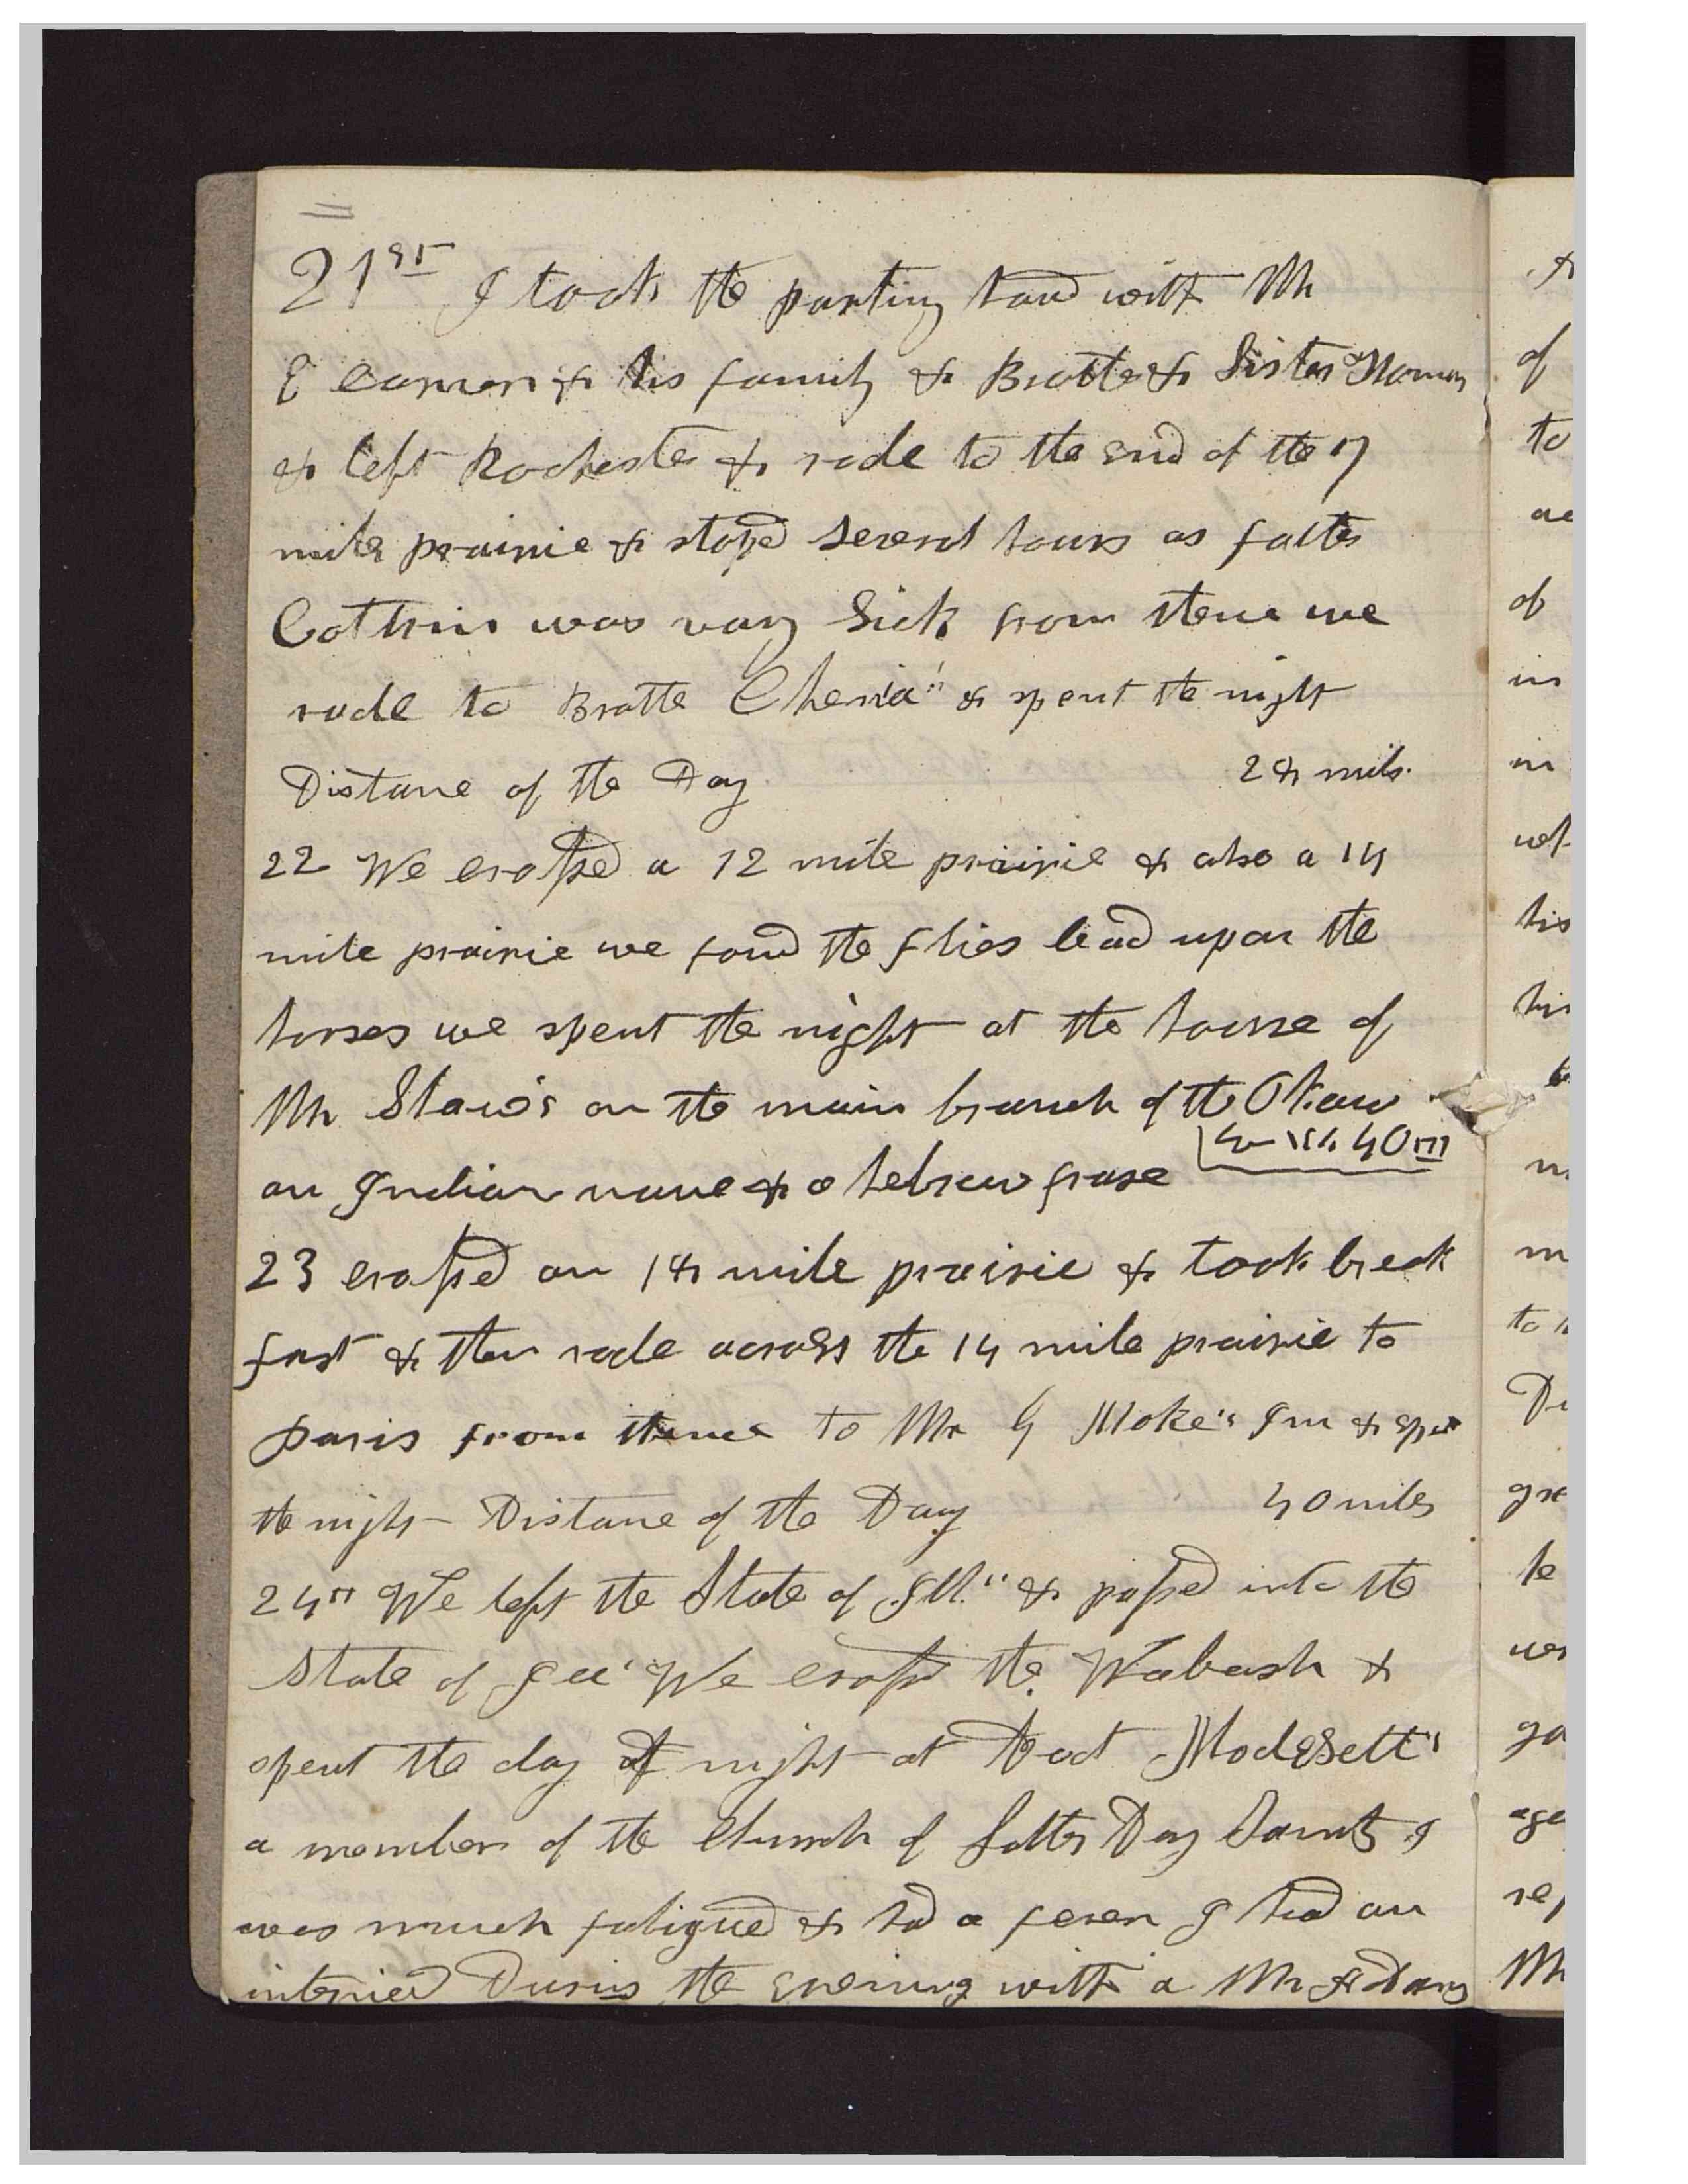 =
21st I took the parting hand with Mr
& his family & Brother & Sister
& left Rochester & rode to the end of the 7
mile prairie & stoped several hours as father
Cothrin was vary Sick from thence we
rode to Brother & spent the night
Distance of the Day 28 mils.
22 We crossed a 12 mile prairie & also a 14
mile prairie we found the flies bad upon the
horses we spent the night at the house of
Mr on the main branch of the Okaw
an Indian name & a hebrew frase 40 m
23 crossed an 18 mile prairie & took breck
fast & then rode across the 14 mile prairie to
paris from thence to Mr G Moke's Inn & spent
the night Distance of the Day 40 miles
24th We left the State of Ill. & passed into the
State of We crossed the Wabash &
spent the day & night at Doct Modesett's
a member of the Church of Latter Day Saints I
was much fatigued & had a fever I had an
interview During the evening with a Mr